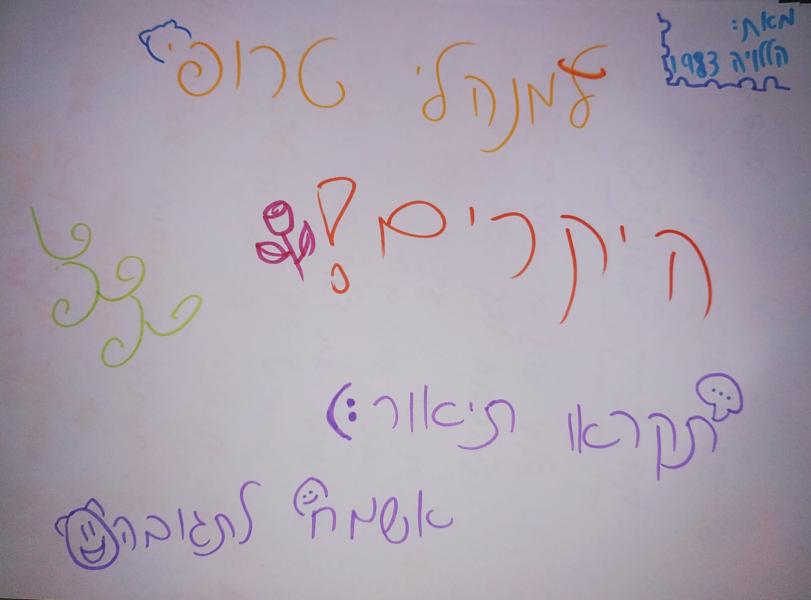 מאת:
הלויה 1983
למנהלי טרופי
היקרים!
תקראו תיאור:)
אשמח לתגובה